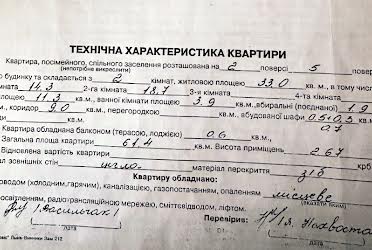 ТЕХНІЧНА ХАРАКТЕРИСТИКА КВАРТИРИ
Квартира, посімейного, спільного заселення розташована на 2 поверсі 5
(непотрібне викреслити)
будинку та складається з 2 кімнат, житловою площею 33.0 кв. м., в тому числі
кімната 14.3 2-га кімната 18.7 3-я кімната 4-та кімната
площею 11.3 кв.м., ванної кімнати площею 3.9 кв.м., вбиральні (поєднана) 1.9
м., коридор 9.0 кв.м., перегородкою кв. м., вбудованої шафи 0.5 0.5
0.7
Квартира обладнана балконом (терасою, лоджією) 0.6 кв.м.
Загальна площа квартири 61.4 кв. м. Висота приміщень 2.67
Відновлена вартість квартири крб.
зовнішніх стін матеріал перекриття з/б
Квартиру обладнано:
водоводом (холодним, гарячим), каналізацією, газопостачанням, опаленням місцеве
(вказати яким)
освітленням, радіотрансляційною мережею, сміттєвідводом, ліфтом.
Перевірив:
Зам 212